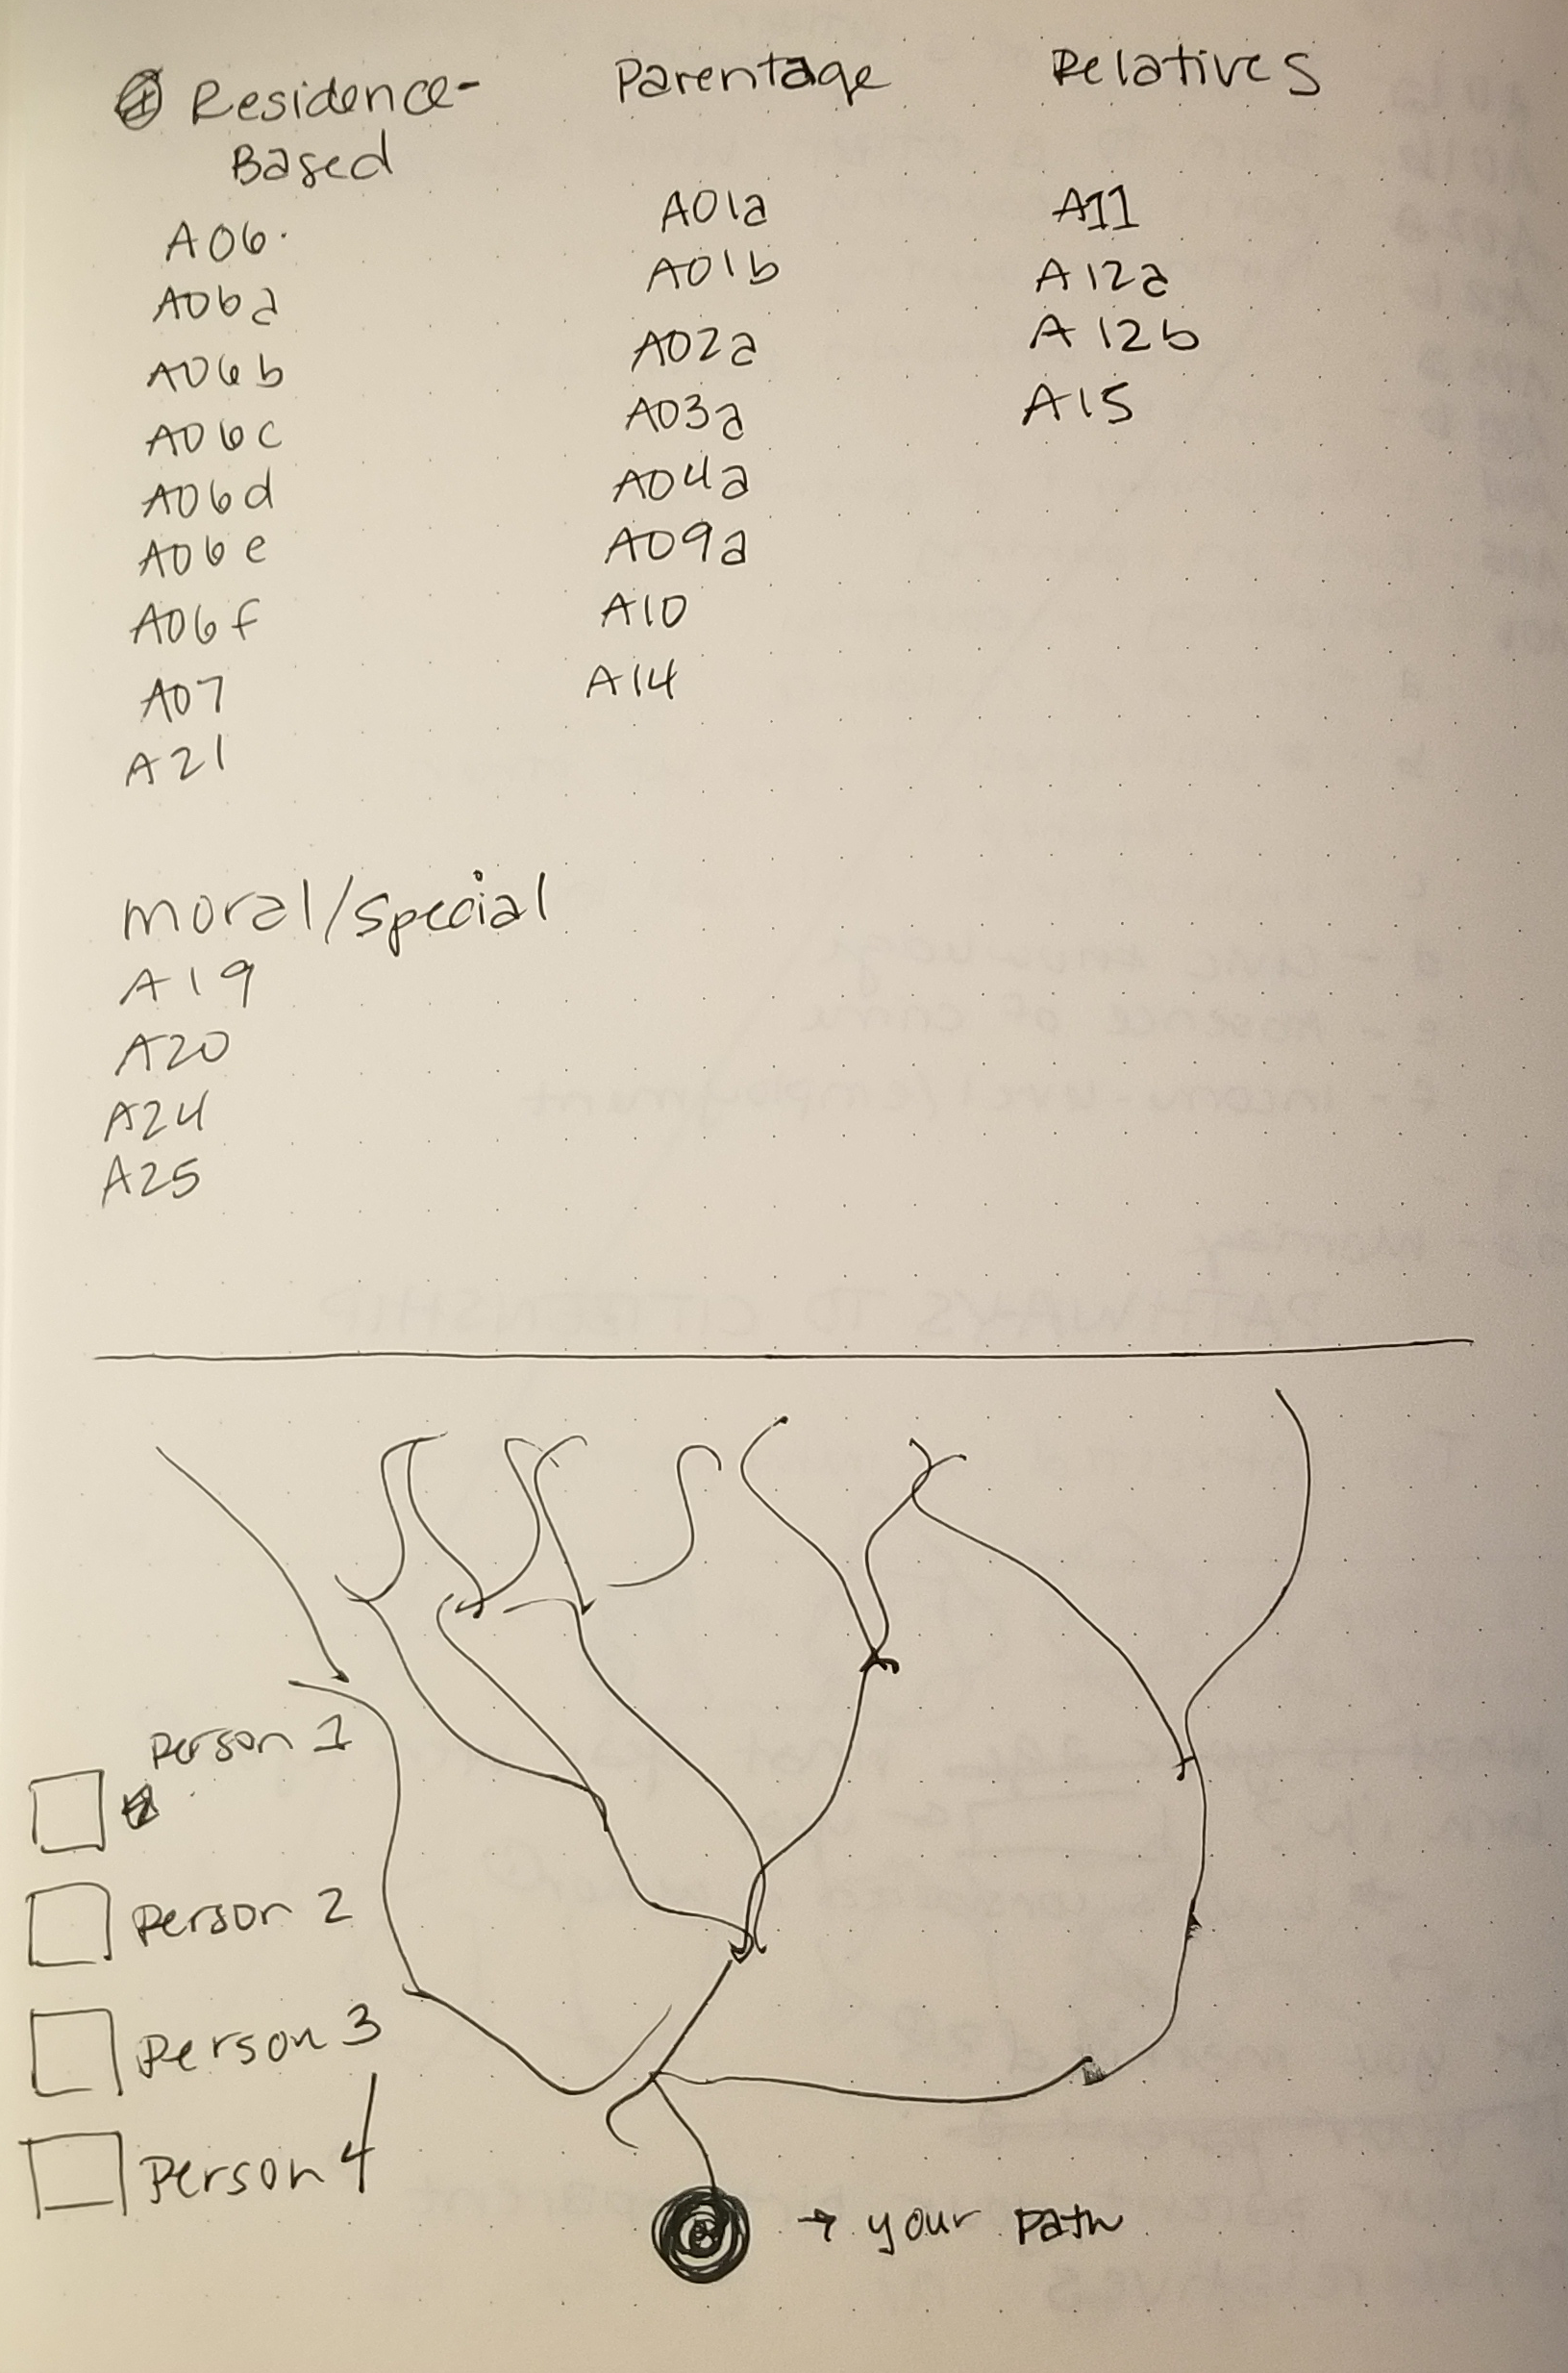 Residence-
Based
A06.
A06a
A06b
A06c
A06d
A06e
A06f
A07
A21
Parentage
A01a
A01b
A02a
A03a
A04a
A09a
A10
A14
Relatives
A11
A12a
A12b
A15
moral/special
A19
A20
A24
A25
Person 1
Person 2
Person 3
Person 4
→ your path